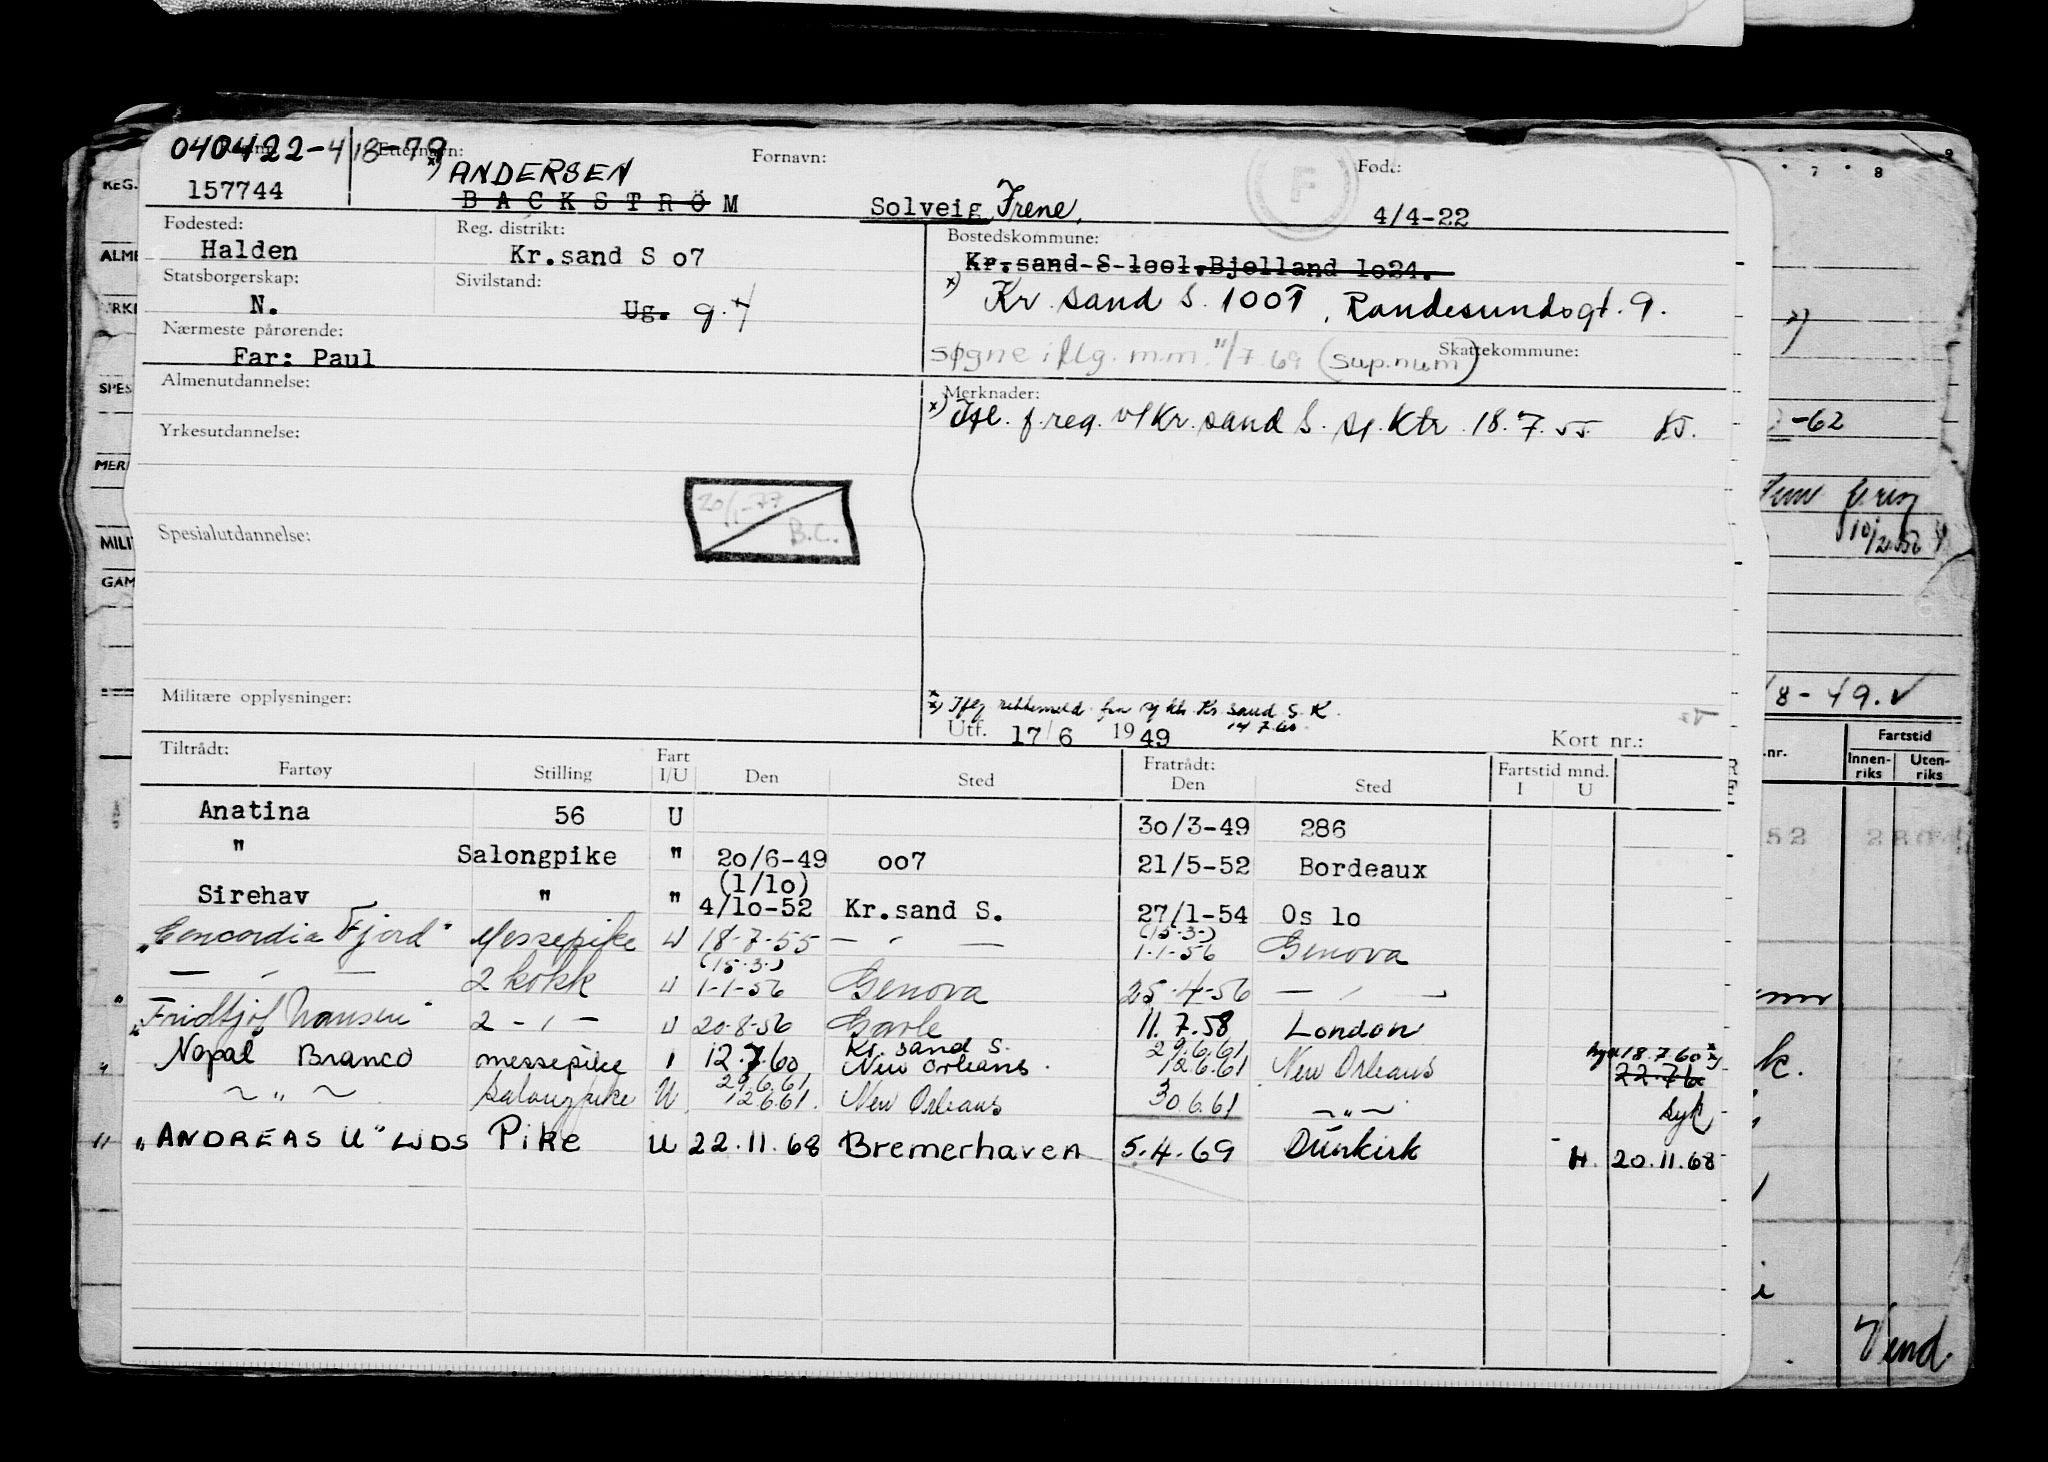 040422-418-79 Etternavn: Fornavn: Født:
x) ANDERSEN F
157744 BACKSTRÖM Solveig Irene, 4/4-22
Fødested: Reg. distrikt: Bostedskommune:
Halden Kr.sand S o7 Kr.sand S 1oo1, Bjelland 1o24.
Statsborgerskap: Sivilstand: x) Kr. sand S. 1001, Randesundsgt. 9.
N. Ug. g.
Nærmeste pårørende: Skattekommune:
Far: Paul søgne iflg. m.m. 11/7 69 (sup.num)
Almenutdannelse: Merknader:
x) Ifl. f.reg. v/Kr.sand S. sj.ktr. 18.7.55
Yrkesutdannelse:
20/1-77
B.C.
Spesialutdannelse:
Militære opplysninger:
Kr sand S. K.
14.7.60.
Utf. 17/6 1949 Kort nr.:
Tiltrådt: Fart Fratrådt: Fartstid mnd.
Fartøy Stilling I/U Den Sted Den Sted I U
Anatina 56 U 3o/3-49 286
" Salongpike " 2o/6-49 oo7 21/5-52 Bordeaux
(1/1o)
Sirehav " " 4/1o-52 Kr.sand S. 27/1-54 Os lo
(15.3.)
"Concordia Fjord" Messepike U 18-7-55 — " — 1-1-56 Genova
(15.3.)
— " — 2 kokk U 1-1-56 Genova 25.4-56 — " —
"Fridtjof Nansen" 2 - " - U 20-8-56 11.7.58 London
Kr. sand S. 29.6.61 18.7.60 x)
Nopal Branco messepike " 12.7.60 New Orleans. 12.6.61 New Orleans 22.7.60
29.6.61
~ " ~ Salongpike U 12.6.61. New Orleans 30.6.61 ~ " ~ syk
"ANDREAS U" LJDS Pike U 22.11.68 Bremerhaven 5.4.69 Dünkirk H. 20.11.68
REG.
ALME
SPES
MER
MILI
GAM
7 8 9
x)
-62
10/2.56
8-49.
.nr. Fartstid
Innen-riks Uten-riks
52
k.
Vend